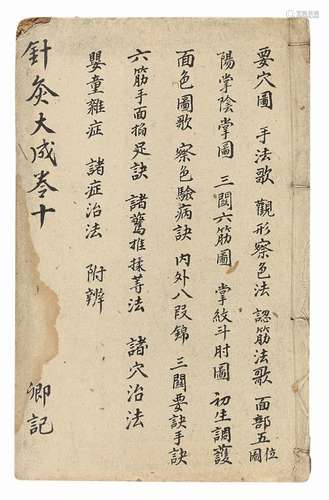 要穴圖 手法歌 觀形察色法 認筋法歌 面部五位圖
陽掌陰掌圖 三関六筋圖 掌紋斗肘圖 初生調護
面色圖歌 察色驗病訣 內外八段錦 三關要訣手訣
六筋手面掐足訣 諸驚推揉等法 諸穴治法
嬰童雜症 諸症治法 附辨
針灸大成卷十 卿記